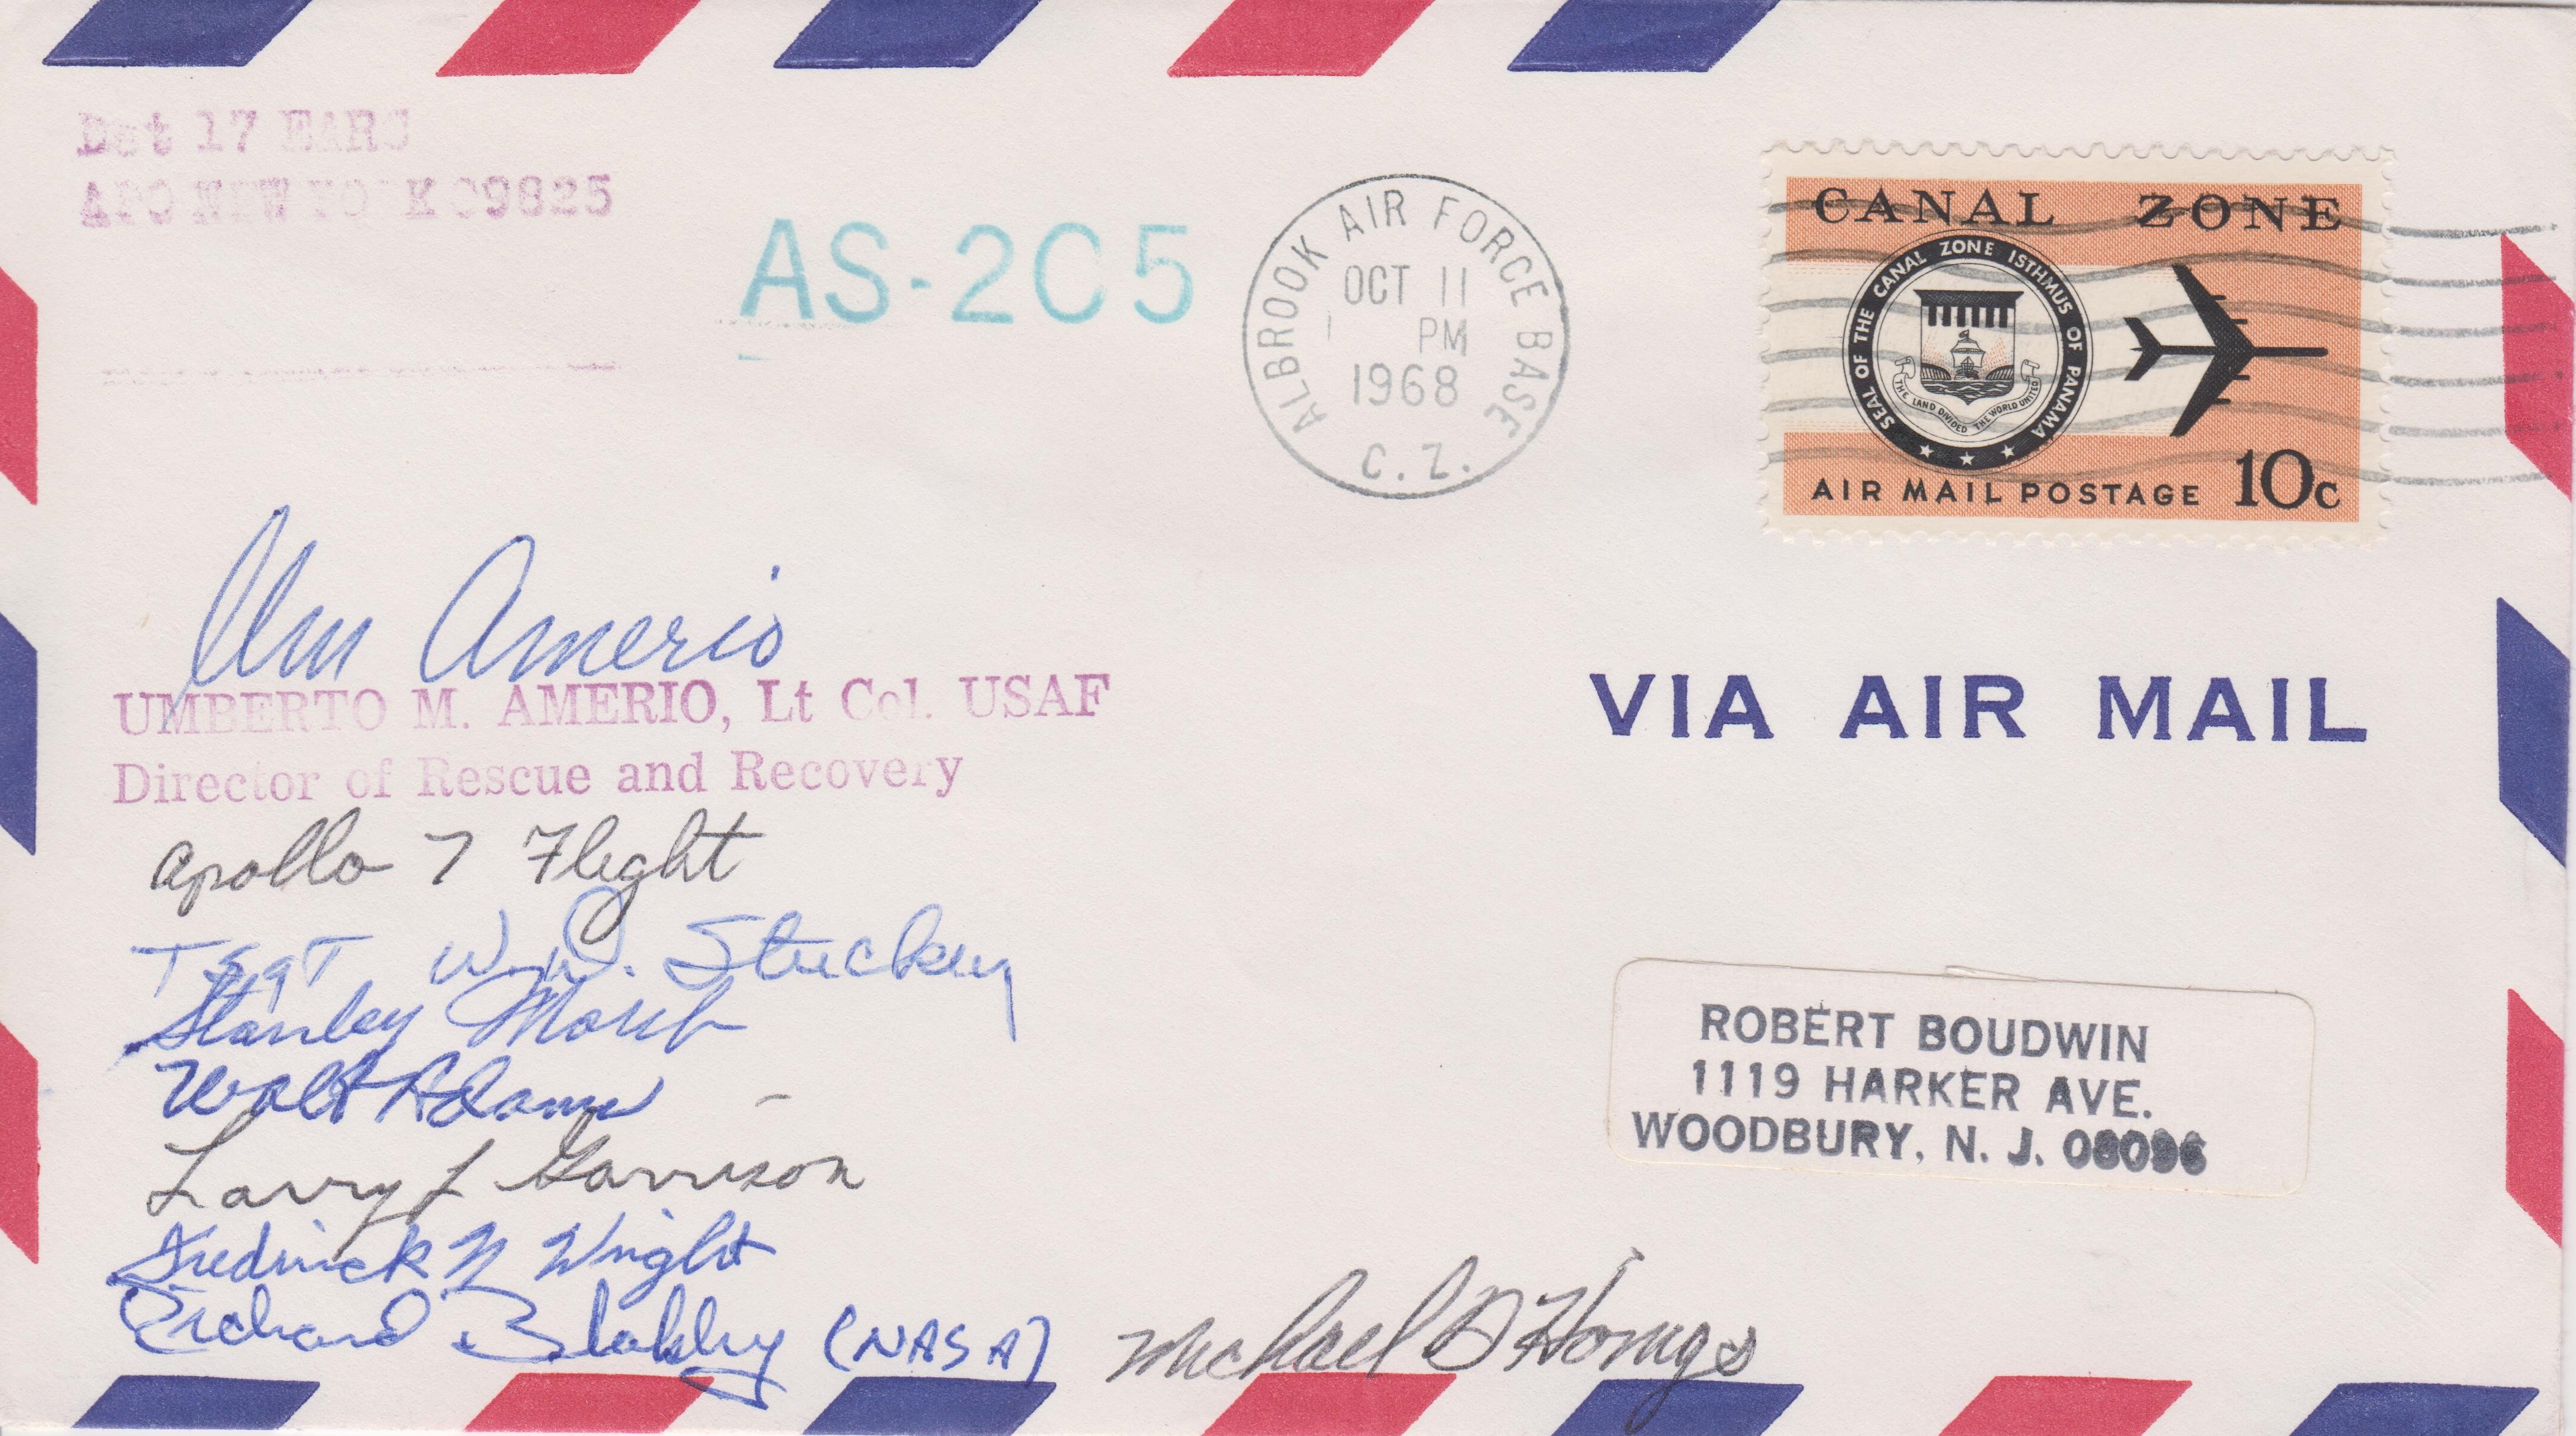 Det 17 EARS
APO NEW YORK 09825
AS-205
ALBROOK AIR FORCE BASE
OCT 11
PM
1968
C. Z.
CANAL ZONE
SEAL OF THE CANAL ZONE ISTHMUS OF PANAMA
THE LAND DIVIDED THE WORLD UNITED
AIR MAIL POSTAGE 10c
Um Amerio
UMBERTO M. AMERIO, Lt Col. USAF
Director of Rescue and Recovery
Apollo 7 Flight
VIA AIR MAIL
TSgT W. D. Stuckey
Stanley
Walt Adams
Larry L Garrison
Fredrick N Wright
Richard (NASA)
Michael D
ROBERT BOUDWIN
1119 HARKER AVE.
WOODBURY, N. J. 08096